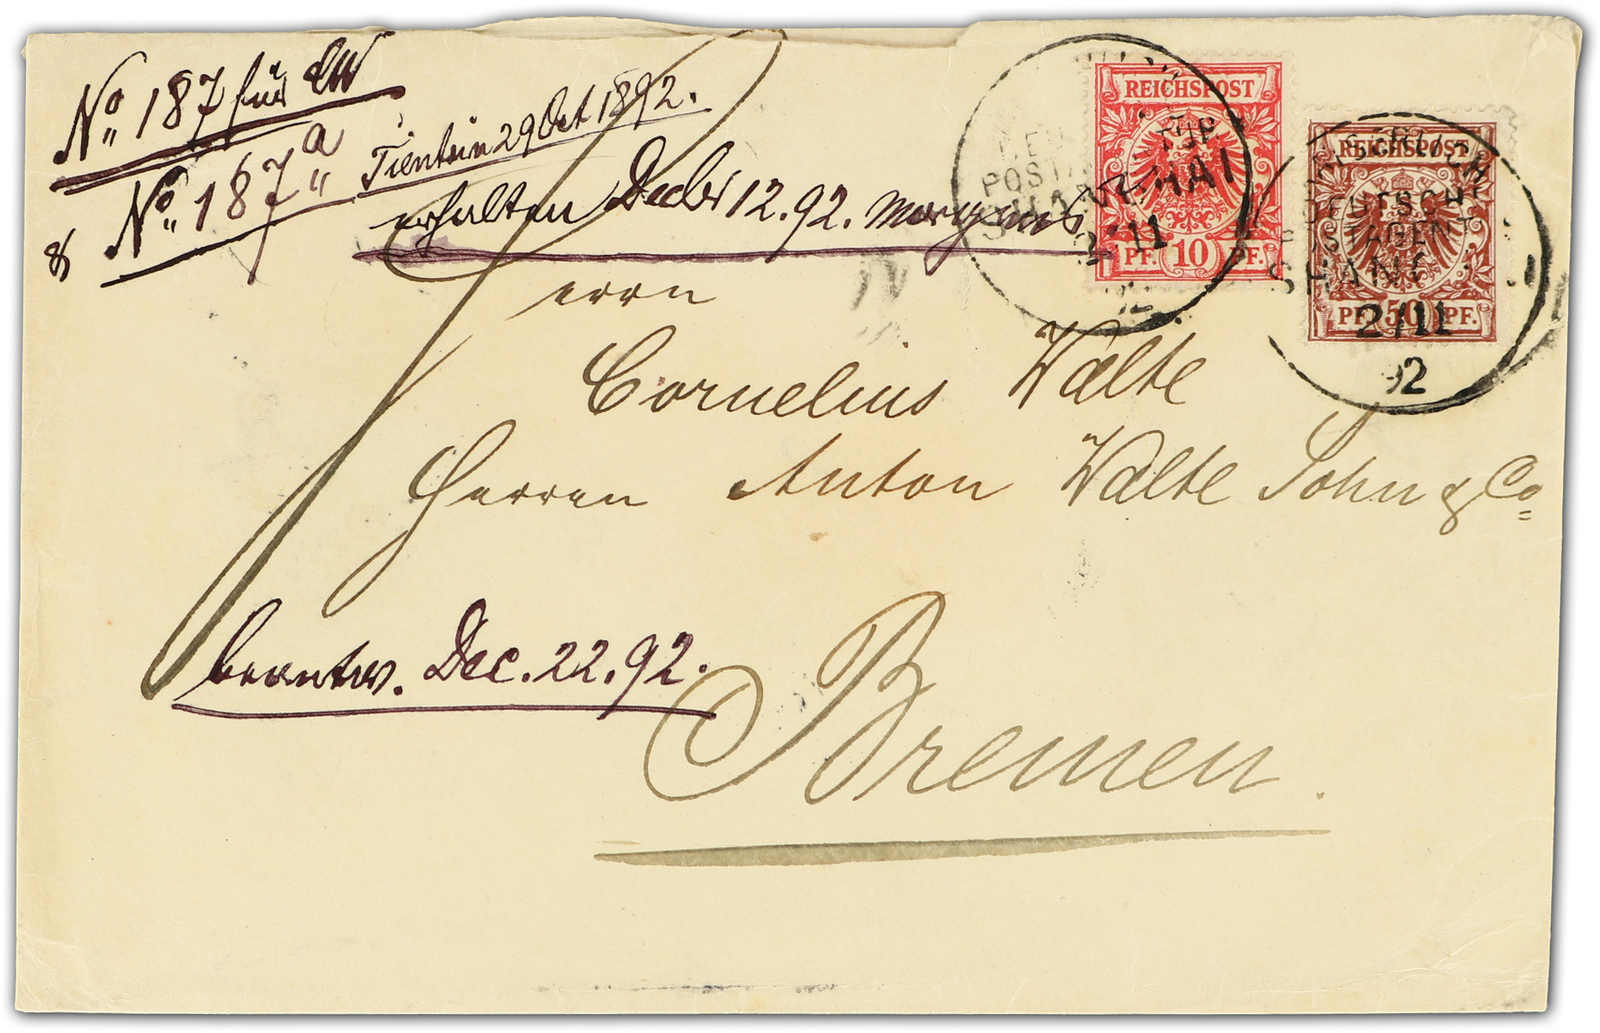 No 187 für CW
& No 187a
Tientsin 29 Oct 1892.
erhalten Decbr 12. 92. morgens
Herrn
Cornelius Walte
Herren Anton Walte Sohn & Co
Bremen.
beantw. Dec. 22. 92.
REICHSPOST
PF. 10 PF.
SHANGHAI
2/11
REICHSPOST
PF. 50 PF.
KAISERLICH
DEUTSCHE
POSTAGENTUR
SHANG
2/11
92